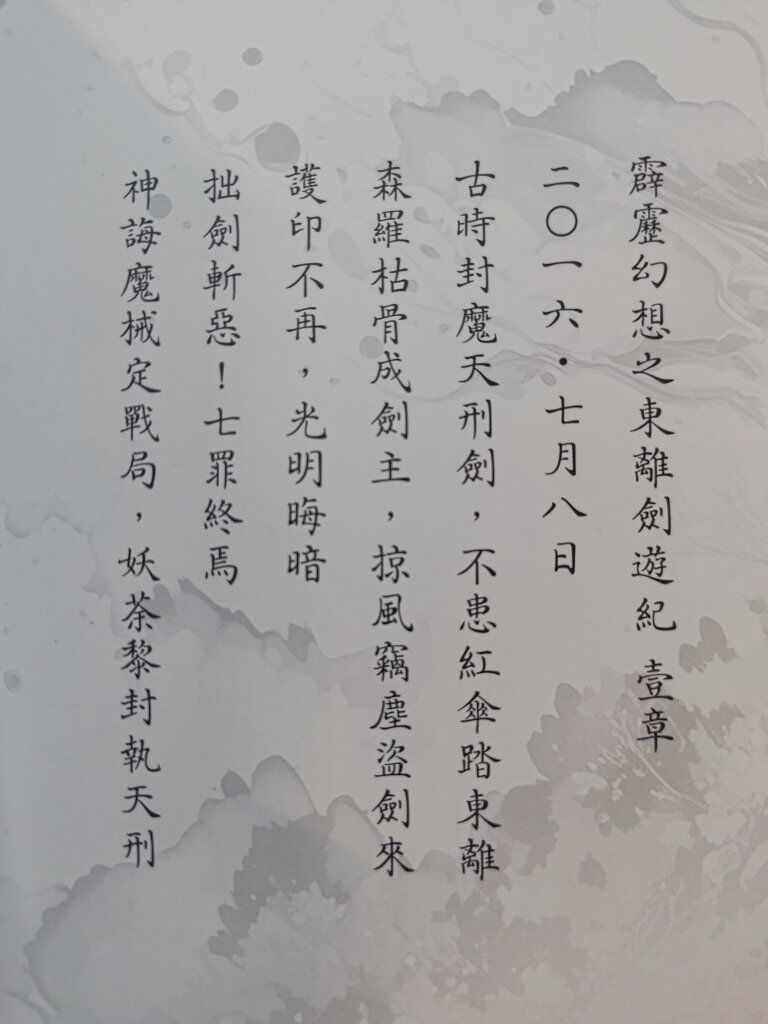 霹靂幻想之東離劍遊紀 壹章
二〇一六・七月八日
古時封魔天刑劍，不患紅傘踏東離
森羅枯骨成劍主，掠風竊塵盜劍來
護印不再，光明晦暗
拙劍斬惡！七罪終焉
神誨魔械定戰局，妖荼黎封執天刑